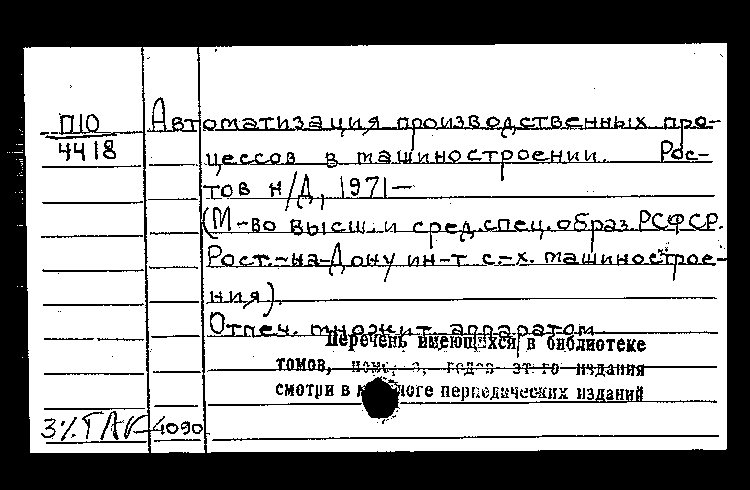 П10
4418
Автоматизация производственных про-
цессов в машиностроении. Рос-
тов н/Д, 1971—
(М-во высш. и сред. спец. образ. РСФСР.
Рост.-на-Дону ин-т с.-х. машинострое-
ния).
Отпеч. множит. аппаратом
Перечень имеющихся в библиотеке
томов, издания
смотри в периодических изданий
4090